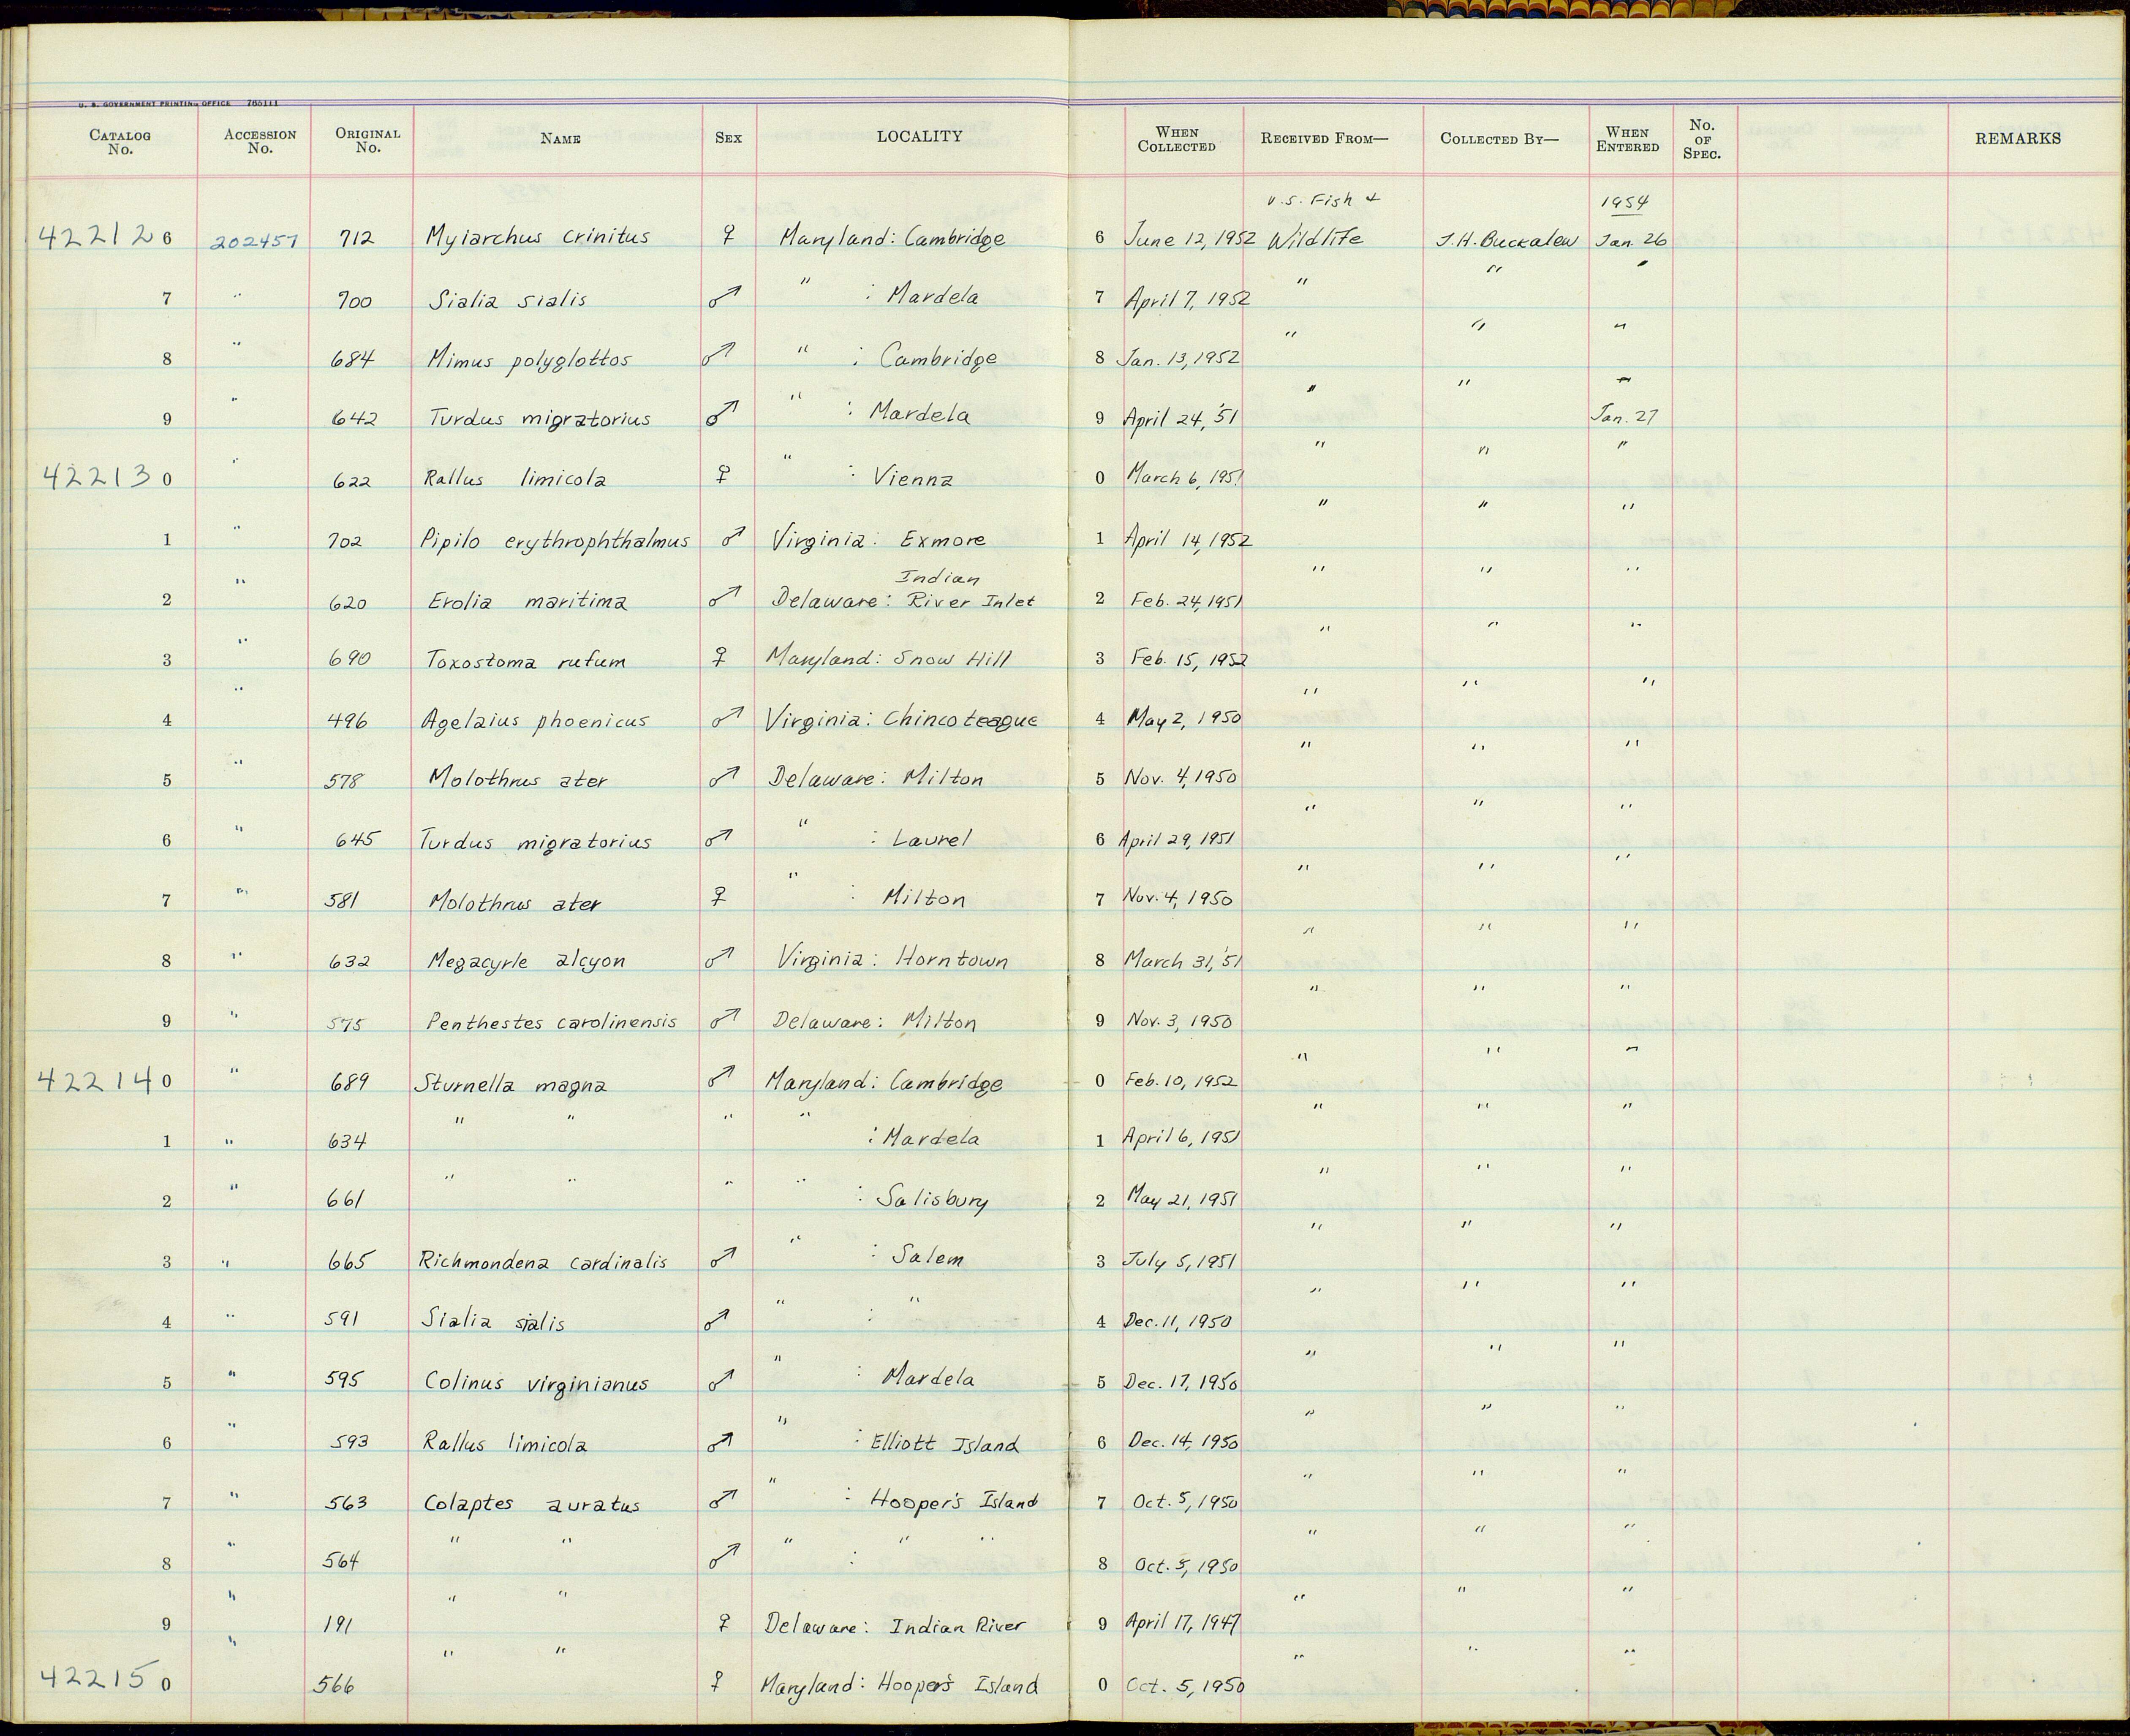 U. S. GOVERNMENT PRINTING OFFICE 765111
CATALOG No. ACCESSION No. ORIGINAL No. NAME SEX LOCALITY WHEN COLLECTED RECEIVED FROM— COLLECTED BY— WHEN ENTERED No. OF SPEC. REMARKS
U.S. Fish & 1954
422126 202457 712 Myiarchus crinitus ♀ Maryland: Cambridge 6 June 12, 1952 Wildlife J.H. Buckalew Jan. 26
7 " 700 Sialia sialis ♂ " : Mardela 7 April 7, 1952 " " "
8 " 684 Mimus polyglottos ♂ " : Cambridge 8 Jan. 13, 1952 " " "
9 " 642 Turdus migratorius ♂ " : Mardela 9 April 24, '51 " " " Jan. 27
422130 " 622 Rallus limicola ♀ " : Vienna 0 March 6, 1951 " " "
1 " 702 Pipilo erythrophthalmus ♂ Virginia: Exmore 1 April 14, 1952 " " "
Indian
2 " 620 Erolia maritima ♂ Delaware: River Inlet 2 Feb. 24, 1951 " " "
3 " 690 Toxostoma rufum ♀ Maryland: Snow Hill 3 Feb. 15, 1952 " " "
4 " 496 Agelaius phoenicus ♂ Virginia: Chincoteague 4 May 2, 1950 " " "
5 " 578 Molothrus ater ♂ Delaware: Milton 5 Nov. 4, 1950 " " "
6 " 645 Turdus migratorius ♂ " : Laurel 6 April 29, 1951 " " "
7 " 581 Molothrus ater ♀ " : Milton 7 Nov. 4, 1950 " " "
8 " 632 Megacyrle alcyon ♂ Virginia: Horntown 8 March 31, '51 " " "
9 " 575 Penthestes carolinensis ♂ Delaware: Milton 9 Nov. 3, 1950 " " "
422140 " 689 Sturnella magna ♂ Maryland: Cambridge 0 Feb. 10, 1952 " " "
1 " 634 " " " " : Mardela 1 April 6, 1951 " " "
2 " 661 " " " " : Salisbury 2 May 21, 1951 " " "
3 " 665 Richmondena cardinalis ♂ " : Salem 3 July 5, 1951 " " "
4 " 591 Sialia sialis ♂ " : " 4 Dec. 11, 1950 " " "
5 " 595 Colinus virginianus ♂ " : Mardela 5 Dec. 17, 1950 " " "
6 " 593 Rallus limicola ♂ " : Elliott Island 6 Dec. 14, 1950 " " "
7 " 563 Colaptes auratus ♂ " : Hooper's Island 7 Oct. 5, 1950 " " "
8 " 564 " " ♂ " : " " 8 Oct. 5, 1950 " " "
9 " 191 " " ♀ Delaware: Indian River 9 April 17, 1947 " " "
422150 " 566 " " ♀ Maryland: Hooper's Island 0 Oct. 5, 1950 " " "